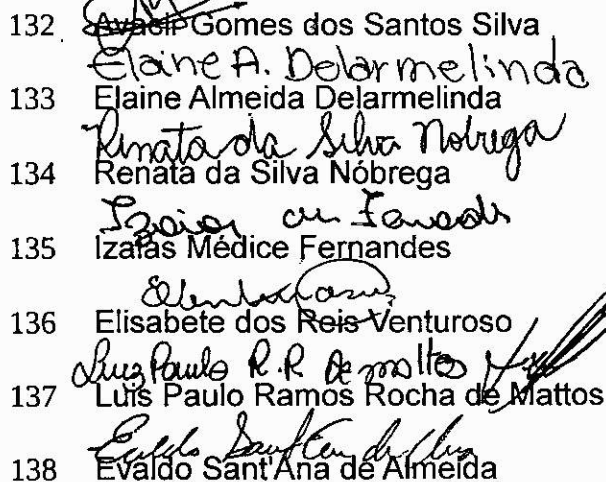 132 Avacir Gomes dos Santos Silva
Elaine A. Delarmelinda
133 Elaine Almeida Delarmelinda
Renata da Silva Nobrega
134 Renata da Silva Nóbrega
Izaias
135 Izaías Médice Fernandes
136 Elisabete dos Reis Venturoso
Luis Paulo R.R. de Mattos
137 Luís Paulo Ramos Rocha de Mattos
Evaldo Sant'Ana de
138 Evaldo Sant'Ana de Almeida